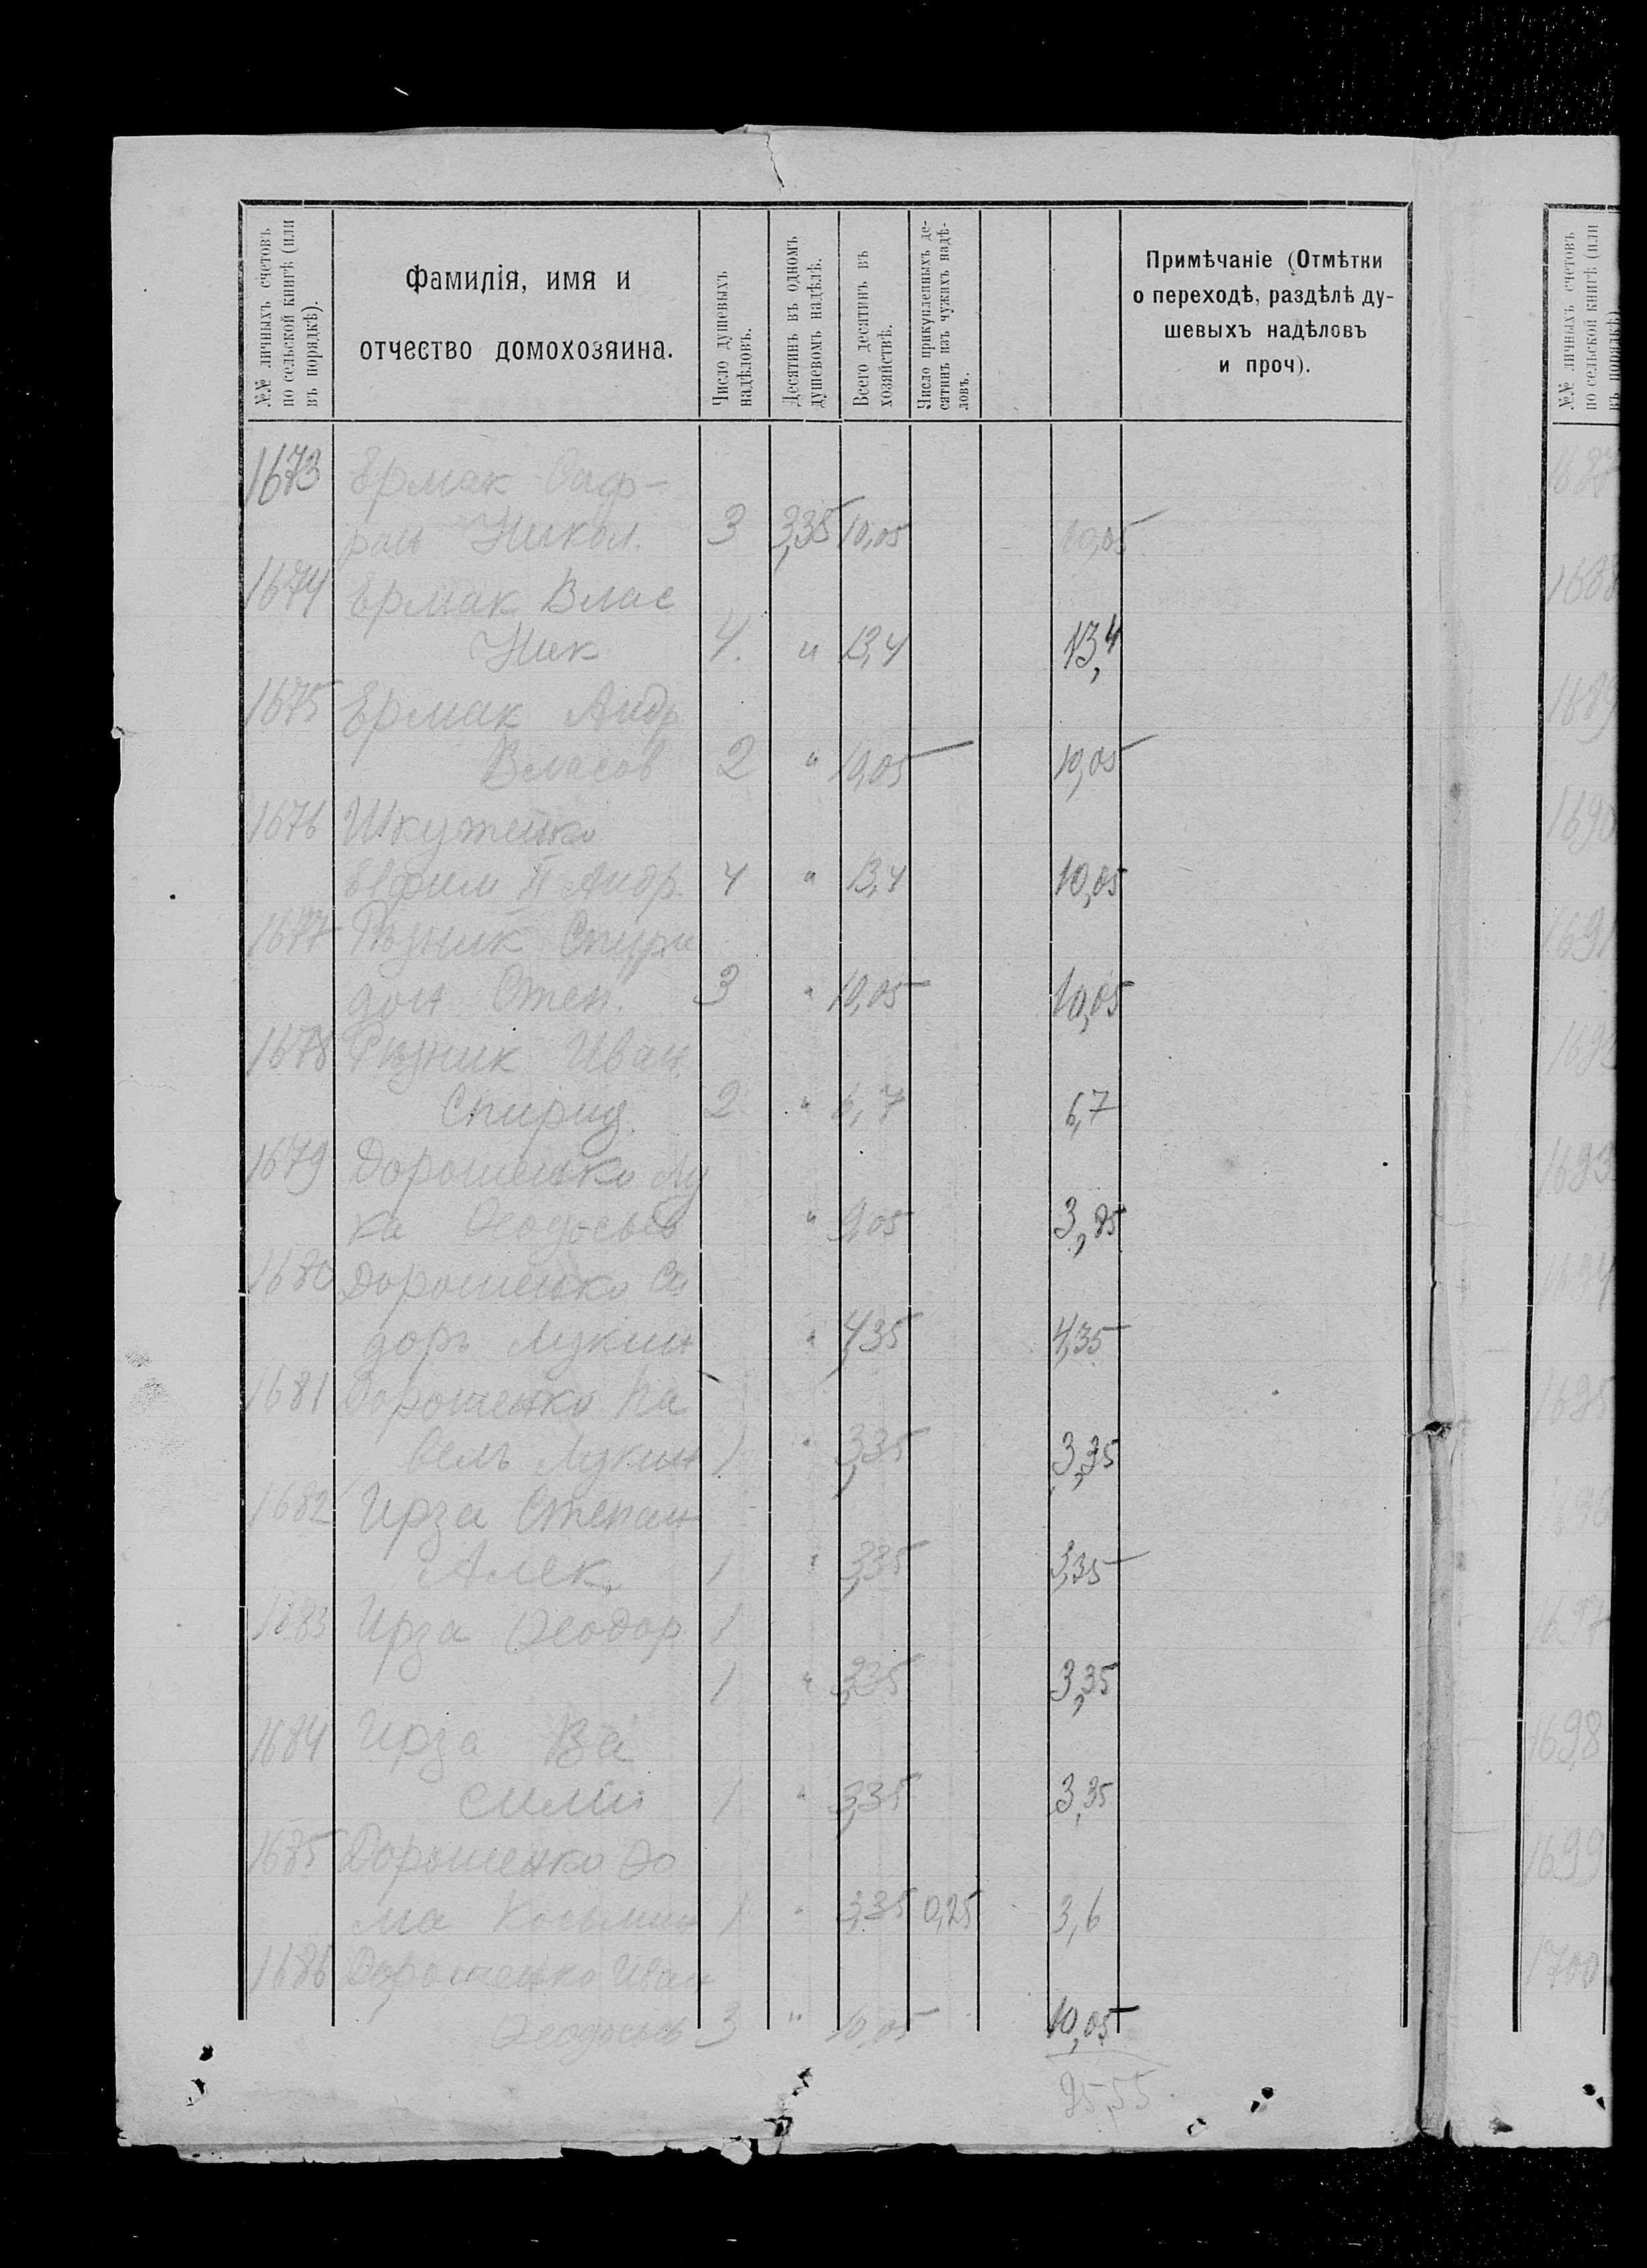 №№ личныхъ счетовъ
по сельской книгѣ (или
въ порядкѣ).
Фамилія, имя и
отчество домохозяина.
Число душевыхъ
надѣловъ.
Десятинъ въ одномъ
душевомъ надѣлѣ.
Всего десятинъ въ
хозяйствѣ.
Число прикупленныхъ де-
сятинъ изъ чужихъ надѣ-
ловъ.
Примѣчаніе (Отмѣтки
о переходѣ, раздѣлѣ ду-
шевыхъ надѣловъ
и проч).
1673 Ермак Саф-
рон Никол. 3 3,35 10,05 10,05
1674 Ермак Влас
Ник 4. " 13,4 13,4
1675 Ермак Андр
Власов 2 " 10,05 10,05
1676
Евфим II Андр. 4 " 13,4 10,05
1677 Рѣзник Спири
дон Степ. 3 " 10,05 10,05
1678 Рѣзник Иван.
Спирид. 2 " 6,7 6,7
1679 Дорошенко Лу
ка Ѳеодосьев " 9,05
1680 Дорошенко Си
доръ Лукин " 4,35 4,35
1681 Дорошенко Па
велъ Лукин 1 " 3,35 3,35
1682 Ирза Степан
Алек. 1 " 3,35 3,35
1683 Ирза Ѳеодор 1
1 " 3,35 3,35
1684 Ирза Ва
силій 1 " 3,35 3,35
1685 Дорошенко Ѳо
ма Косьмин 1 " 3,35 0,25 3,6
1686 Дорошенко Иван
Ѳеодосьев 3 " 10,05 10,05
95,55
№№ личныхъ счетовъ
по сельской книгѣ (или
въ порядкѣ).
1687
1688
1689
1690
1691
1692
1693
1694
1695
1696
1697
1698
1699
1700